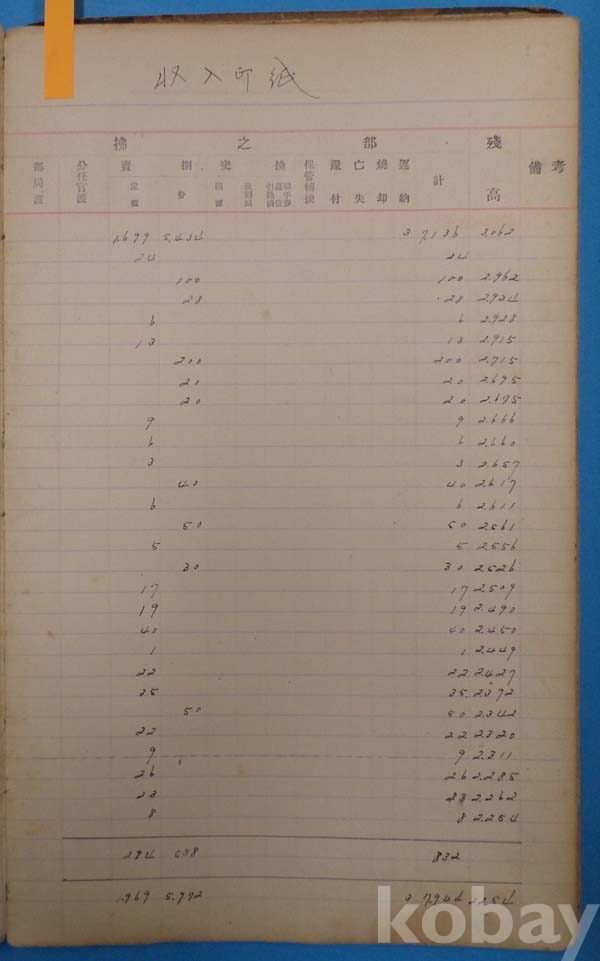 收入印紙
拂之部 残高 備考
部局渡 分任官渡 賣捌 変換 保管轉換 還付 亡失 燒却 返納 計
定價 分
1,699 5,434 3 7,136 3,062
24 24
100 100 2,962
28 28 2,934
6 6 2,928
13 13 2,915
200 200 2,715
20 20 2,695
20 20 2,675
9 9 2,666
6 6 2,660
3 3 2,657
40 40 2,617
6 6 2,611
50 50 2,561
5 5 2,556
30 30 2,526
17 17 2,509
19 19 2,490
40 40 2,450
1 1 2,449
22 22 2,427
35 35 2,392
50 50 2,342
22 22 2,320
9 9 2,311
26 26 2,285
23 23 2,262
8 8 2,254
294 538 832
1,969 5,972 3 7,944
kobay